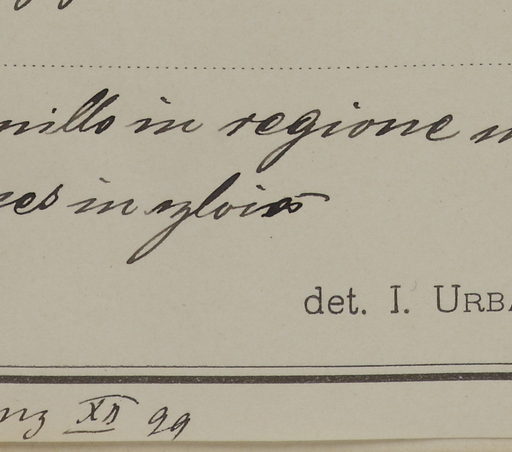 nillo in regione
in sylvis
det. I. URBA
XII 99